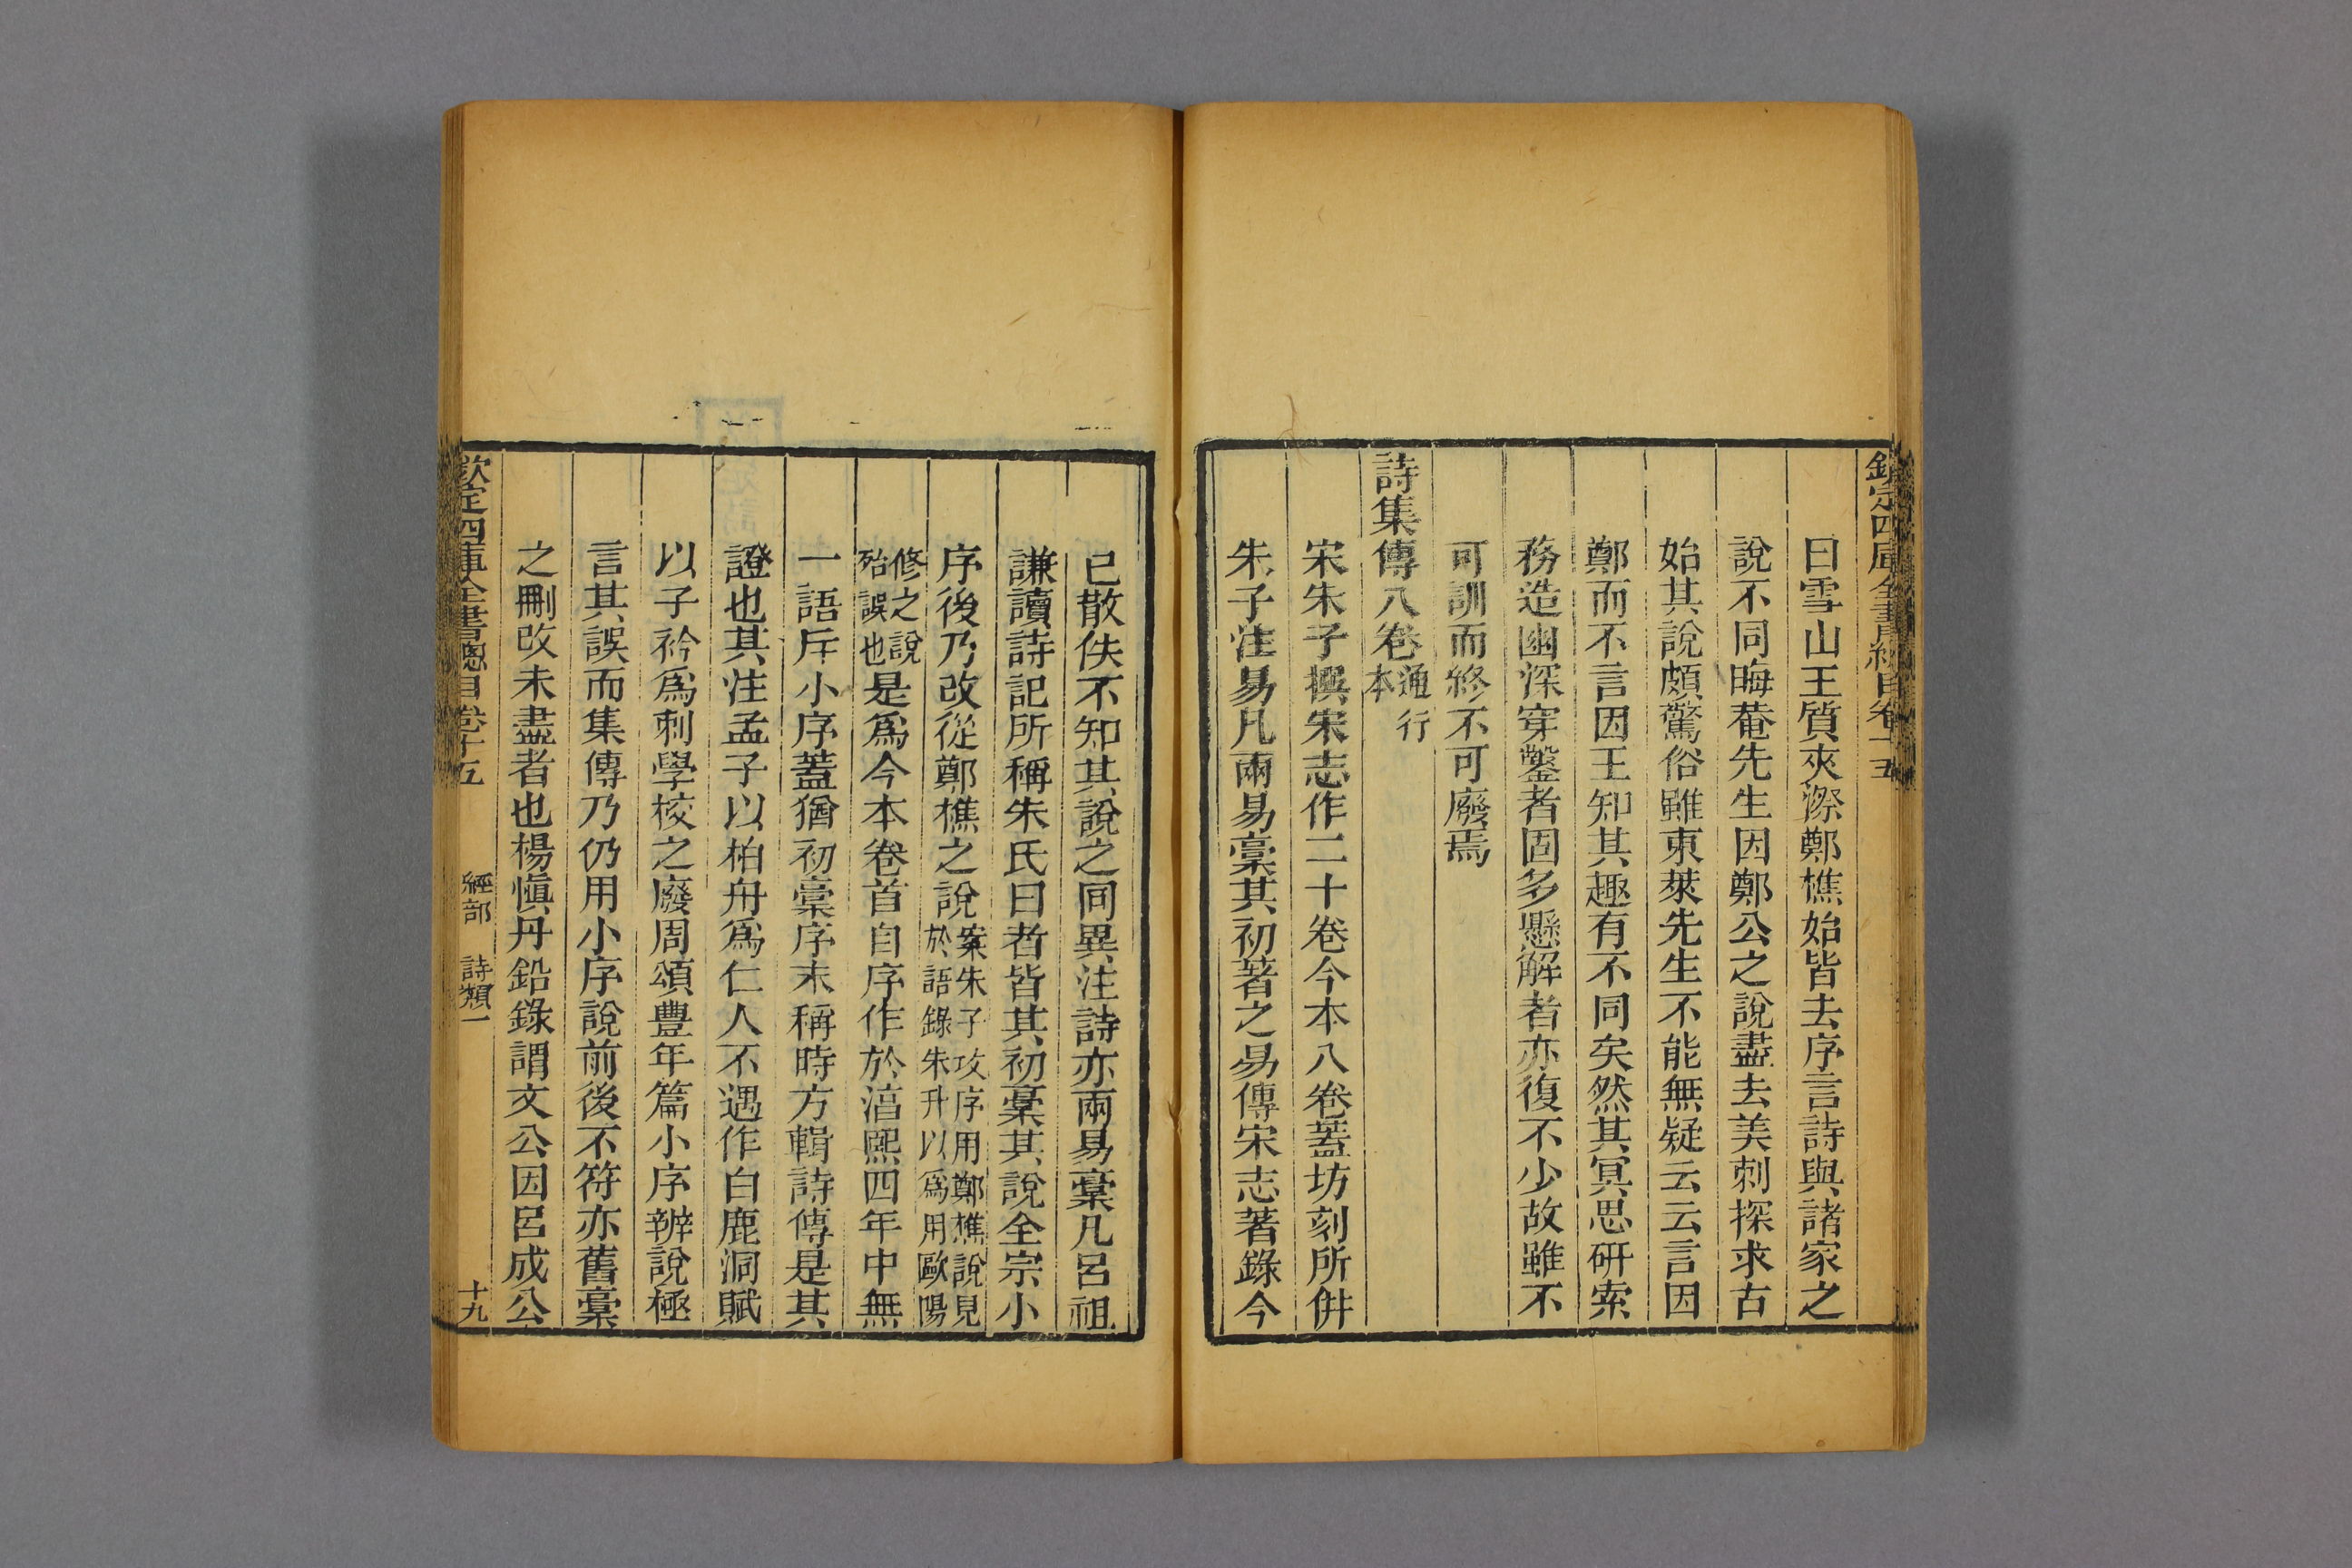 欽定四庫全書總目卷十五
曰雪山王質夾漈鄭樵始皆去序言詩與諸家之
說不同晦菴先生因鄭公之說盡去美刺探求古
始其說頗驚俗雖東萊先生不能無疑云云言因
鄭而不言因王知其趣有不同矣然其冥思研索
務造幽深穿鑿者固多懸解者亦復不少故雖不
可訓而終不可廢焉
詩集傳八卷通行本
宋朱子撰宋志作二十卷今本八卷蓋坊刻所併
朱子注易凡兩易稾其初著之易傳宋志著錄今
已散佚不知其說之同異注詩亦兩易稾凡呂祖
謙讀詩記所稱朱氏曰者皆其初稾其說全宗小
序後乃改從鄭樵之說案朱子攻序用鄭樵說見於語錄朱升以爲用歐陽
修之說殆誤也是爲今本卷首自序作於淳熙四年中無
一語斥小序蓋猶初稾序末稱時方輯詩傳是其
證也其注孟子以柏舟爲仁人不遇作白鹿洞賦
以子衿爲刺學校之廢周頌豐年篇小序辨說極
言其誤而集傳乃仍用小序說前後不符亦舊稾
之刪改未盡者也楊愼丹鉛錄謂文公因呂成公
欽定四庫全書總目卷十五 經部 詩類一 十九